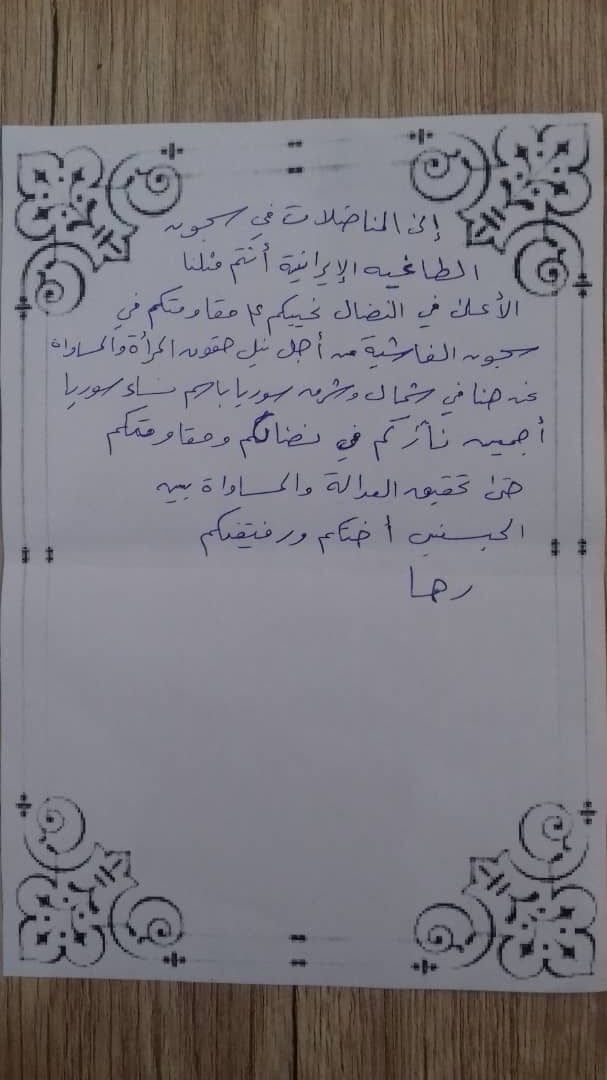 إلى المناضلات في سجون
الطاغيه الإيرانية أنتم مثلنا
الأعلى في النضال نحييكم على مقاومتكم في
سجون الفاشية من أجل نيل حقوق المرأة والمساواة
نحن هنا في شمال وشرق سوريا باسم نساء سوريا
أجمعين نأزركم في نضالكم ومقاومتكم
حتى تحقيق العدالة والمساواة بين
الجنسين أختكم ورفيقتكم
رها